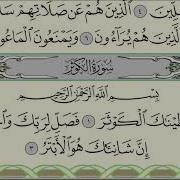 صَلِّينَ ٤ الَّذِينَ هُمْ عَن صَلَاتِهِمْ سَا
الَّذِينَ هُمْ يُرَاءُونَ ٦ وَيَمْنَعُونَ الْمَاعُو
سُورَةُ الْكَوْثَرِ
بِسْمِ اللَّهِ الرَّحْمَٰنِ الرَّحِيمِ
طَيْنَاكَ الْكَوْثَرَ ١ فَصَلِّ لِرَبِّكَ وَا
إِنَّ شَانِئَكَ هُوَ الْأَبْتَرُ ٣